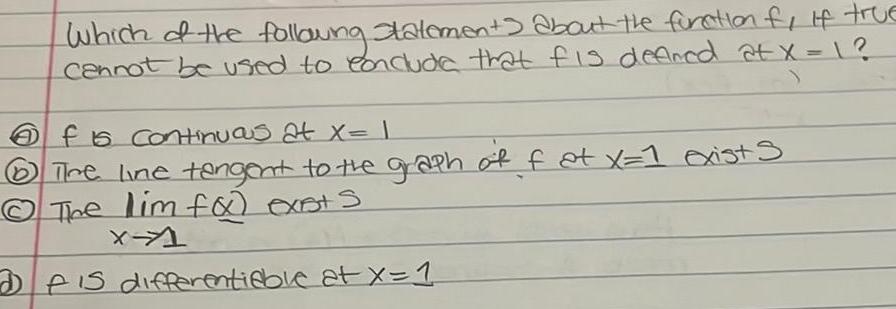 Which of the following statements about the function f, if true
cannot be used to conclude that f is defined at x = 1?
ⓐ f is continuas at x = 1
ⓑ The line tangent to the graph of f at x=1 exists
ⓒ The lim f(x) exists
x→1
ⓓ f is differentiable at x=1